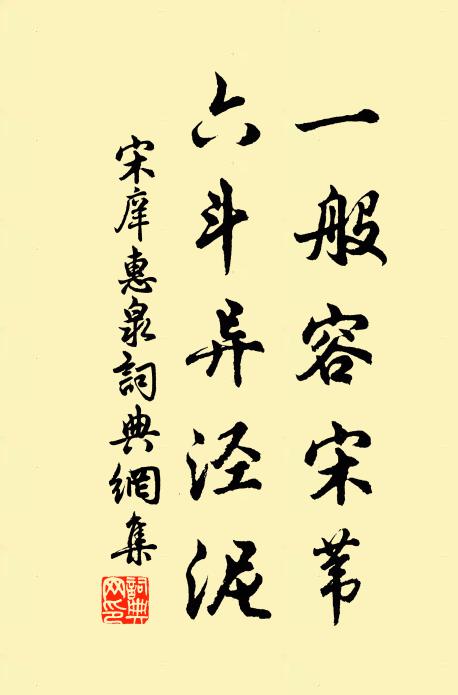 一般容宋苇
六斗异泾泥
宋庠惠泉詞典網集
詞典网印